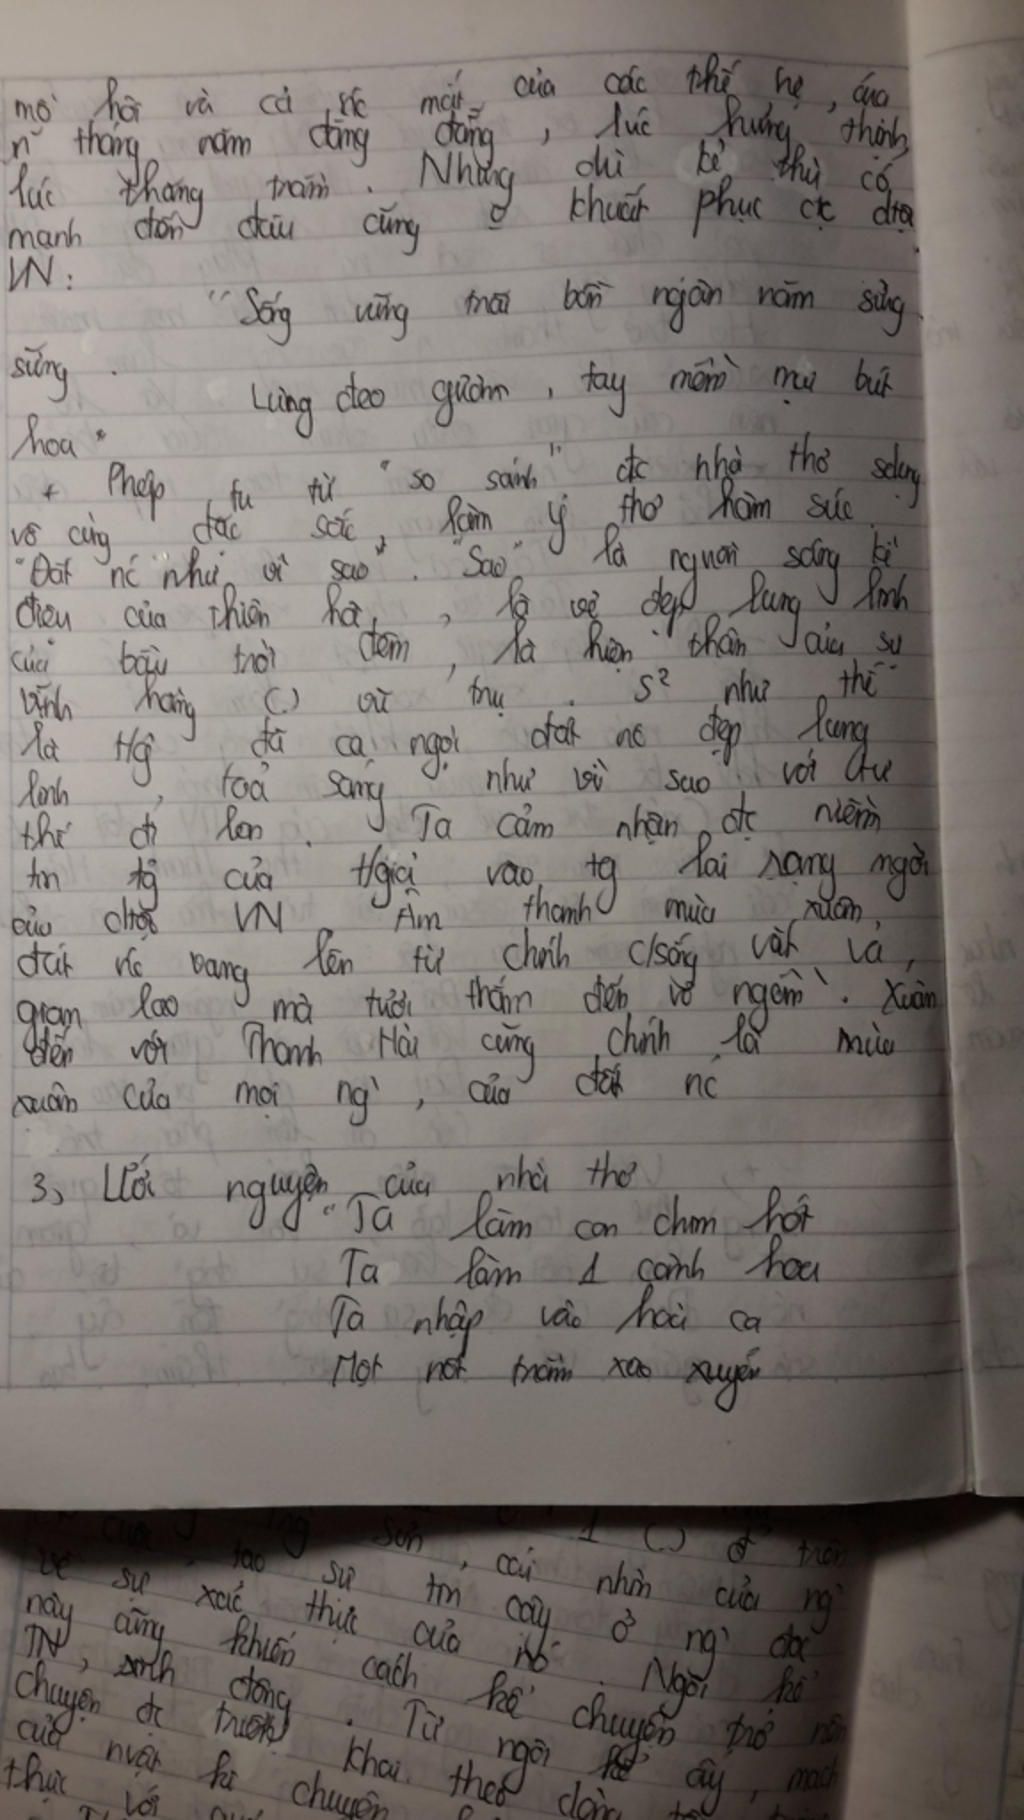 mồ hôi và cả nc mắt của các thế hệ, của
n~ tháng năm đằng đẵng, lúc hưng thịnh,
lúc thăng trầm. Nhưng dù kẻ thù có
mạnh đến đâu cũng o khuất phục đc
VN:
"Sống vững trãi bốn ngàn năm sừng
sững.
Lưng đeo gươm, tay mềm mại bút
hoa"
+ Phép tu từ "so sánh" đc nhà thơ sdụng
vô cùng đặc sắc, làm ý thơ hàm súc
"Đất nc như vì sao". "Sao" là nguồn sáng kì
diệu của thiên hà, là vẻ đẹp lung linh
của bầu trời đêm, là hiện thân của sự
vĩnh hằng () vũ trụ. S² như thế
là đã ca ngợi đất nc đẹp lung
linh, toả sáng như vì sao với tư
thế đi lên. Ta cảm nhận đc niềm
tin của tgiả vào tg lai sáng ngời
của VN. Âm thanh mùa xuân
đất nc vang lên từ chính c/sống vất vả,
gian lao mà tươi thắm đến vô ngần. Xuân
đến với Thanh Hải cũng chính là mùa
xuân của mọi ng`, của đất nc
3, Ước nguyện của nhà thơ
"Ta làm con chim hót
Ta làm 1 cành hoa
Ta nhập vào hoà ca
Một nốt trầm xao xuyến
1 () ở trên
tạo sự tin cậy ở ng` đọc
về sự xác thực của nó. Ngôi kể
này cũng khiến cách kể chuyện trở nên
TN, sinh động. Từ ngôi kể ấy, mạch
chuyện đc triển khai theo dòng